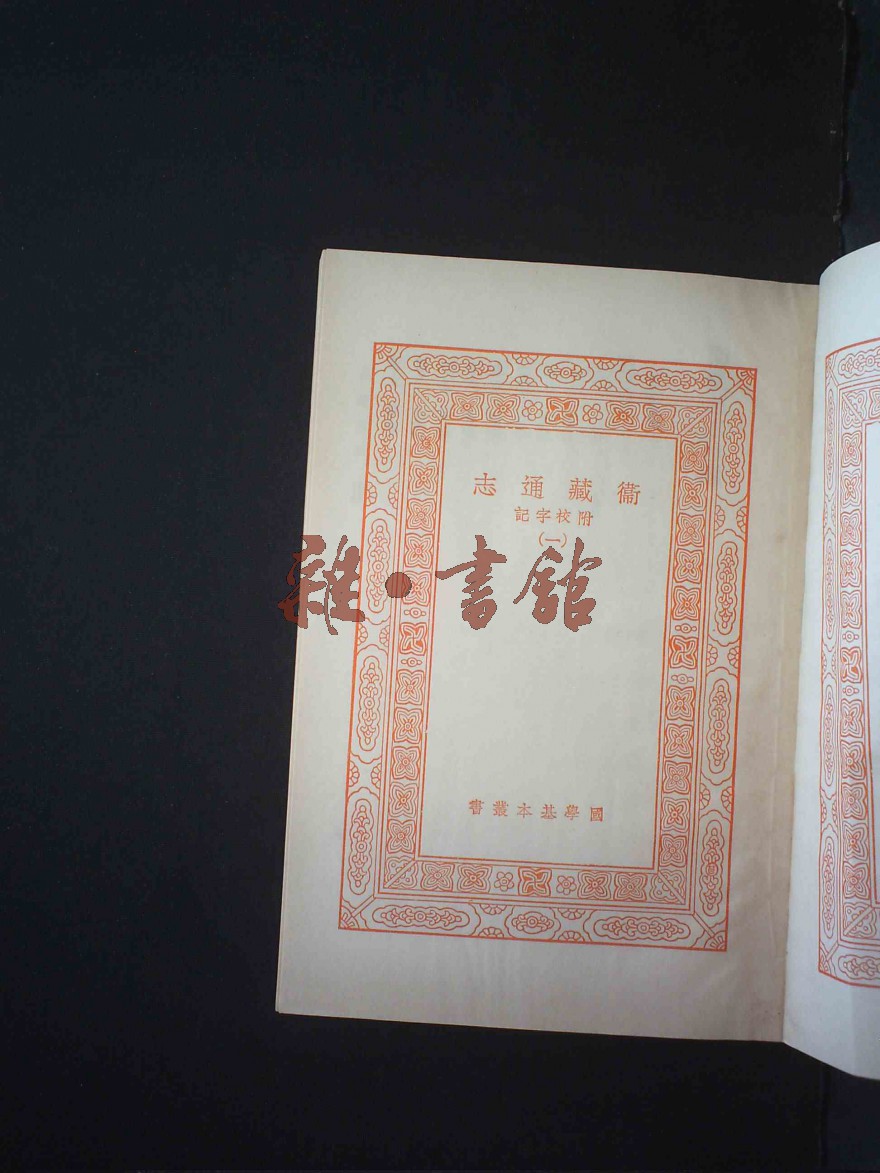 衞藏通志
附校字記
(一)
雜·書館
國學基本叢書